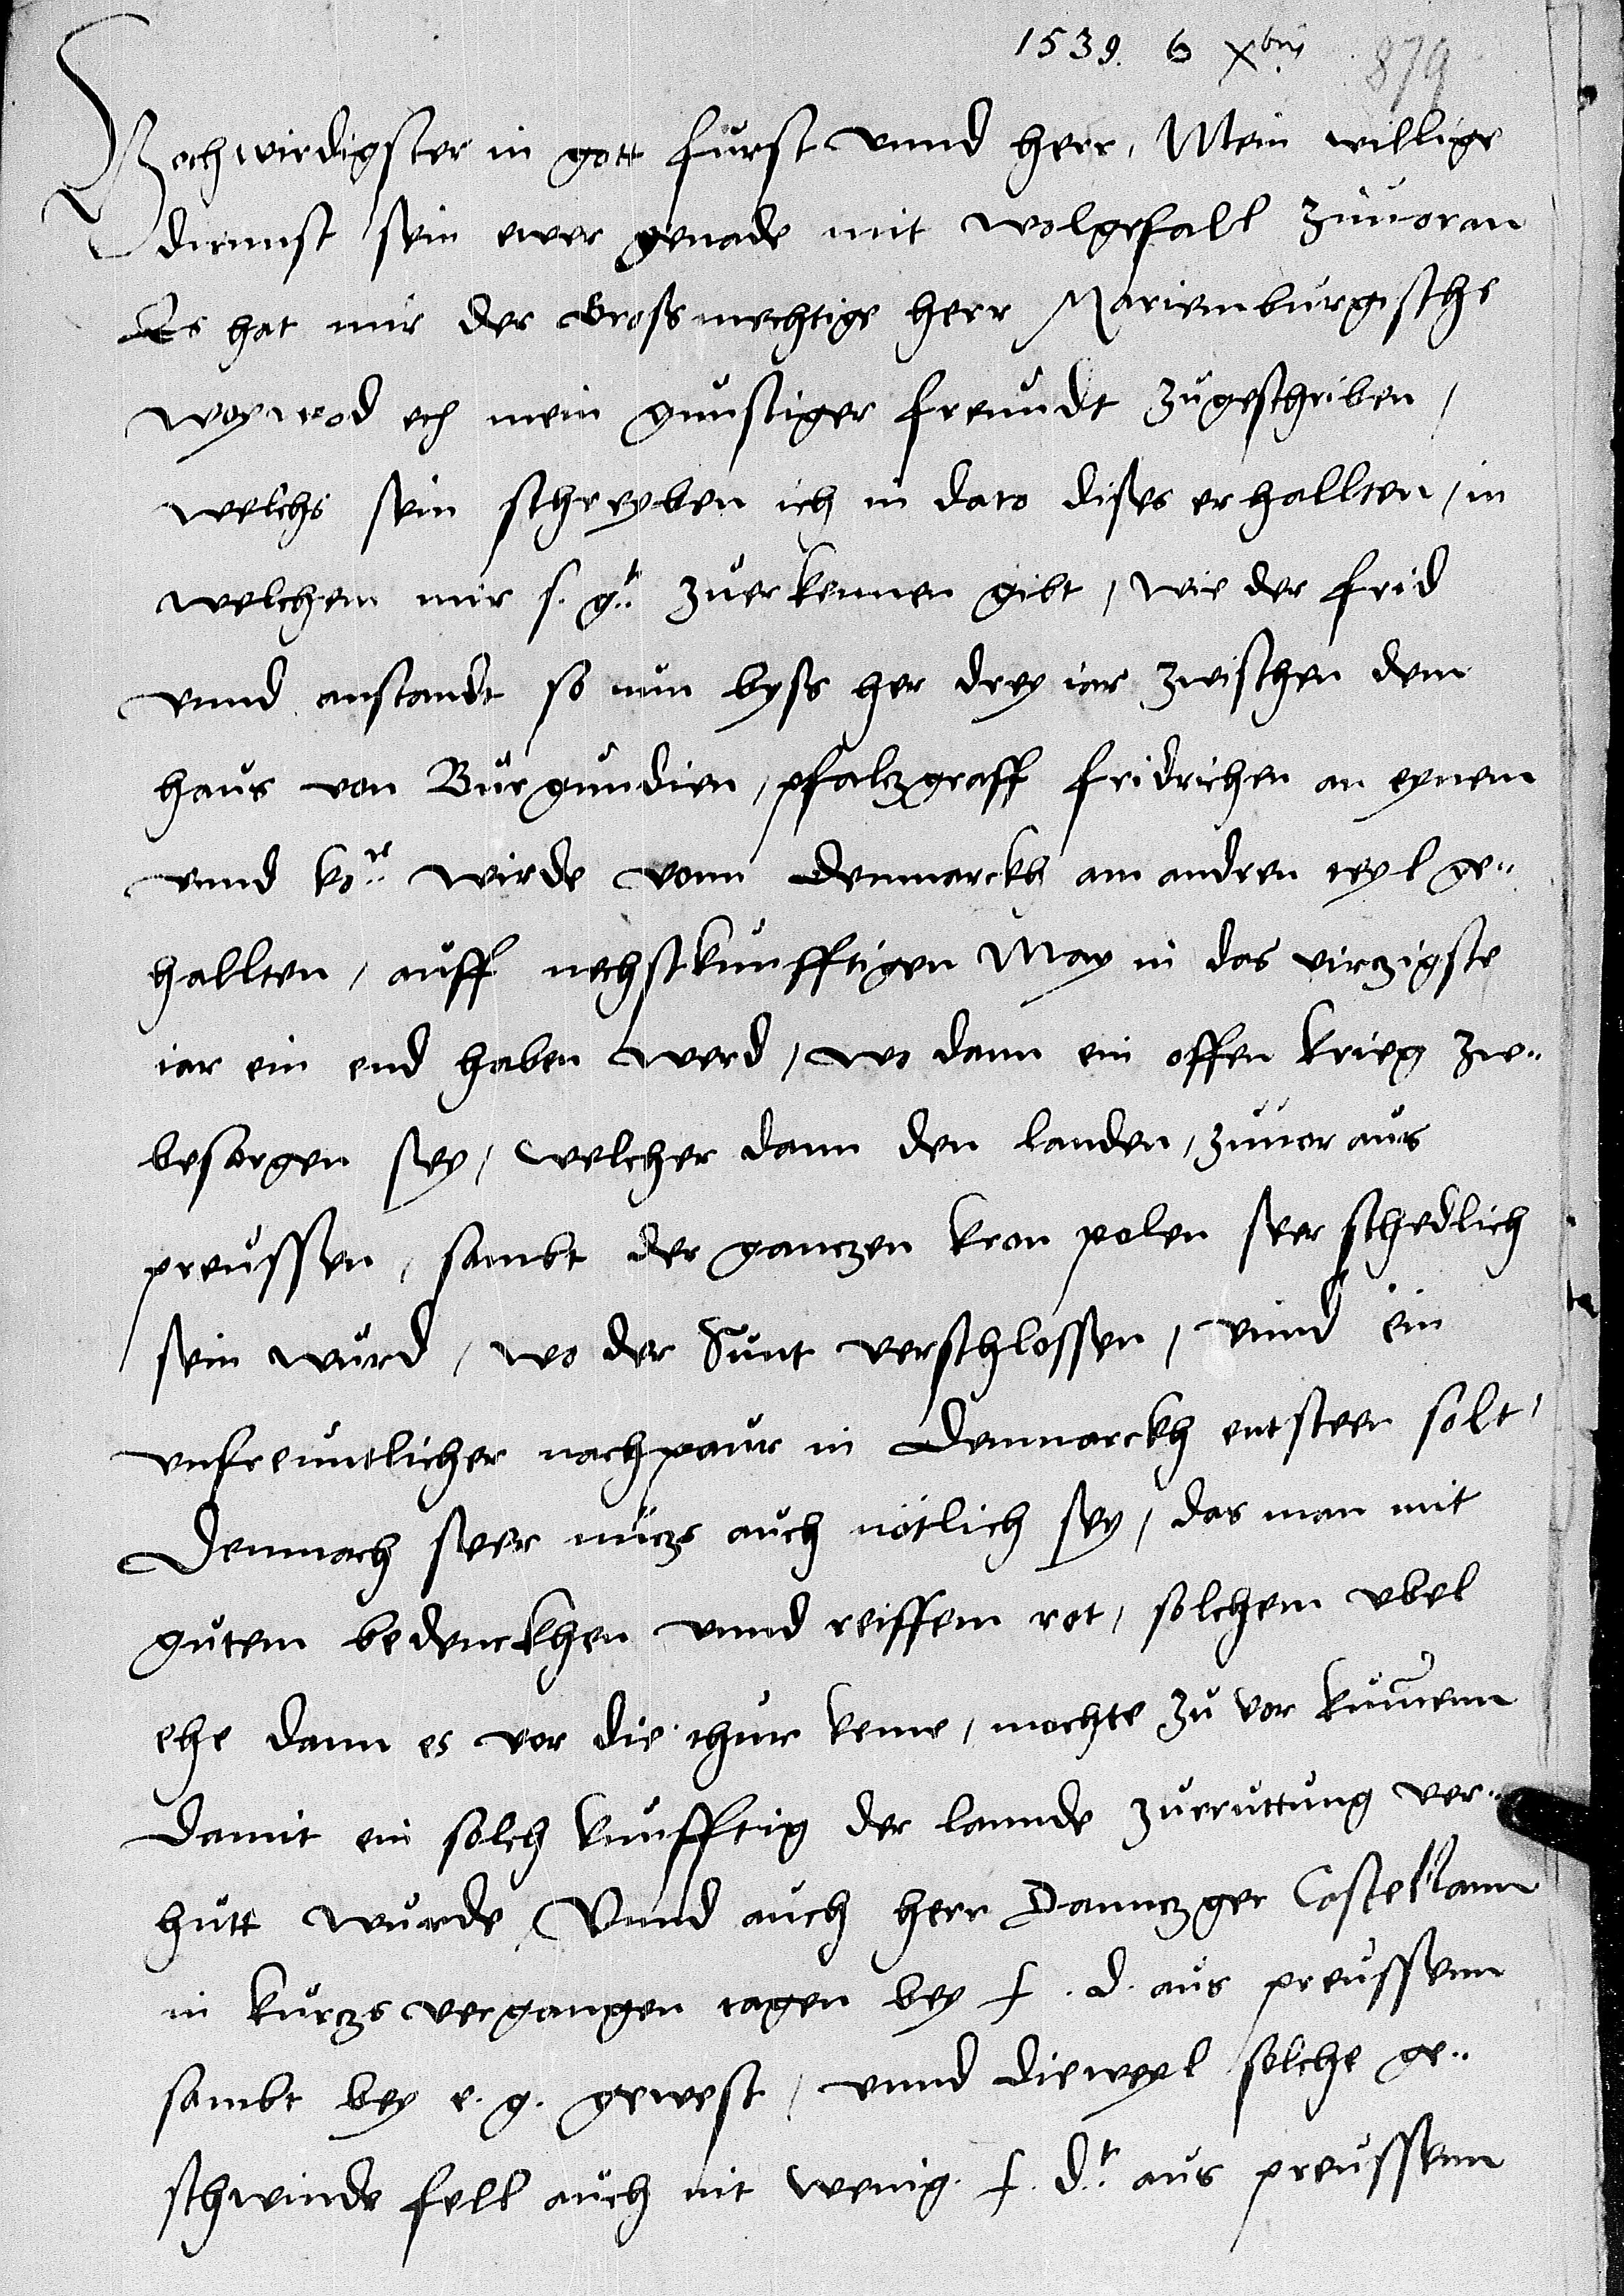 1539. 6 Xbris 879
Hochwirdigster in gott furst vnnd herr, Mein willige
diennst sein ewer genade mit wolgefall zuuoran
Es hat mir der Grossmechtige herr Marienburgischs
woywod ech mein gunstiger freundt zugeschriben,
welchs sein schreyben ich in dato disses erhallten, in
welchem mir s. g.t zuerkennen gibt, wie der frid
vnnd anstandt so nun byss her drey iar zwischen dem
haus von Burgundien, pfalczgraff fridrichen an eynem
vnnd ko.re wirde vonn Denmarckh am andren teyl ge..
hallten, auff nechstkunfftigen May in das virzigste
iar ein end haben werd, wo dann ein offen krieg zw..
besorgen sey, welcher dann den landen, zuuor aus
preussen, sambt der ganczen kron polen seer schedlich
sein wurd, wo der Sunt verschlossen, vnnd ein
vnfreuntlicher nachpaur in Denmarckh entsteen solt,
Demnach seer nutzs auch nötlich sey, das man mit
gutem bedenckhen vnnd reiffem rat, solchem vbel
ehe dann es vor die thur keme, mochte zu vor kumenn
Damit ein solch kunfftig der lannde zurruttung ver..
hutt wurde, Vnnd auch herr Danntzger Castellann
in kurczs vergangen tagen bey f. d. aus preussenn
sambt bey e. g. gewest, vnnd dieweyl solche ge..
schwinde fell auch nit wenig f. d.t aus preussenn